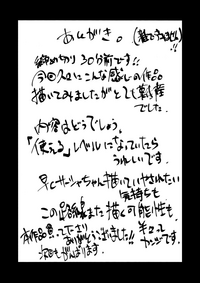 あとがき。
締め切り30分前です!!
今回久々にこんな感じの作品
描いてみましたがとても新鮮
でした。
内容はどうでしょう。
「使える」レベルになっていたら
うれしいです。
早くサーシャちゃん描いていやされたい
気持ちも
この路線また描く可能性も
半々って
カンジです。
本作品買ってくださり
ありがとうございました!!
次回もがんばります。